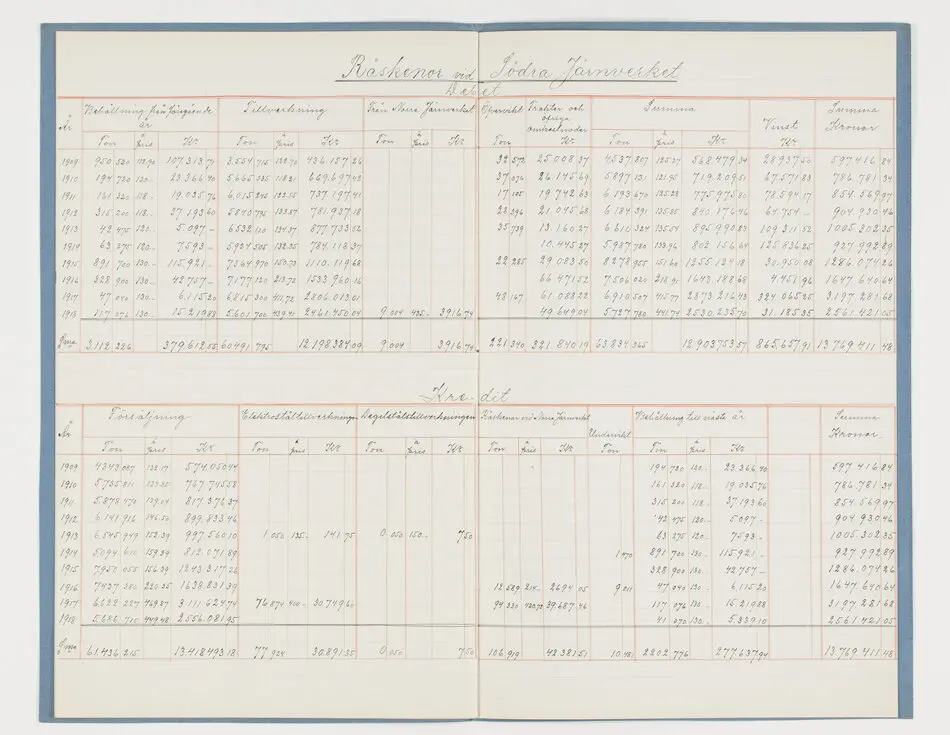 Råskenor vid Södra Järnverket
Debet
År Behållning från föregående år Tillverkning Från Norra Järnverket Övervikt Frakter och öfriga omkostnader Summa Vinst Summa Kronor
Ton à pris Kr Ton à pris Kr Ton à pris Kr Ton Kr Ton à pris Kr Kr
1909 950 520 112.90 107.313 71 3.554 715 122.70 436.157 26 32 572 25.008 37 4537 807 125.27 568.479 34 28.937 50 597 416 84
1910 194 720 120.- 23.366 40 5.665 335 118.21 669.697 42 37 076 26.145 69 5897 131 121.95 719.209 51 67.571 83 786.781 34
1911 161 320 118.- 19.035 76 6.015 245 122.55 737.197 41 17 105 19.742 63 6.193 670 125.28 775.975 80 78.594 17 854.569 97
1912 315 200 118.- 37.193 60 5.840 795 133.87 781.937 18 28 396 21.045 68 6.184 391 135.85 840.176 46 64.754 - 904.930 46
1913 42 475 120.- 5.097 - 6532 110 134.37 877.733 56 35 739 13.160 27 6.610 324 135.54 895.990 83 109.311 52 1.005.302 35
1914 63 275 120.- 7.593 - 5.924 505 132.35 784.118 37 10.445 27 5.987 780 133.96 802 156 64 125.836 25 927.992 89
1915 891 700 130.- 115.921 - 7.364 970 150.73 1.110.119 68 22 285 29.083 50 8.278 955 151.60 1.255.124 18 30.950 08 1.286.074 26
1916 328 900 130.- 42.757 - 7.177 120 213.72 1.533.960 16 66.471 52 7.506 020 218.91 1.643.188 68 4.451 96 1.647.640 64
1917 47 040 130.- 6.115 20 6.815 300 411.72 2.806.013 01 48 167 61.088 22 6.910 507 415.77 2.873.216 43 324.065 25 3.197.281 68
1918 117 076 130.- 15.219 88 5.601 700 439.41 2.461.450 04 9.004 435.- 3.916 74 49.649 04 5.727 780 441.74 2.530.235 70 31.185 35 2.561.421 05
Sma 3.112 226 379.612 55 60491 795 12.198.384 09 9.004 3.916 74 221 340 321.840 19 63.834 365 12.903.753 57 865.657 91 13.769.411 48
Kredit
År Försäljning Elektroståltillverkningen Degelstålstillverkningen Råskenor vid Norra Järnverket Undervikt Behållning till nästa år Summa Kronor
Ton à pris Kr Ton à pris Kr Ton à pris Kr Ton à pris Kr Ton à pris Kr
1909 4343 087 132.17 574.050 44 194 720 120.- 23.366 40 597 416 84
1910 5.735 811 133.85 767.745 58 161 320 118.- 19.035 76 786.781 34
1911 5.878 470 139.04 817.376 37 315 200 118.- 37.193 60 854.569 97
1912 6.141 916 146.50 899.833 46 42 475 120.- 5.097 - 904 930 46
1913 6.545 949 152.39 997.560 10 1 050 135.- 141 75 0.050 150.- 7 50 63 275 120.- 7.593 - 1.005.302 35
1914 5.094 610 159.39 812.071 89 1 470 891 700 130.- 115.921 - 927.992 89
1915 7950 055 156.39 1.243.317 26 328 900 130.- 42.757 - 1.286.074 26
1916 7.437 380 220.35 1.638.831 39 12.589 214.- 2.694 05 9.011 47 040 130.- 6.115 20 1.647.640 64
1917 76 874 400.- 30.749 60 94 330 39.687 46 117 076 130.- 15.219 88 3.197.281 68
1918 5.686 710 449.48 2.556.081 95 41 070 130.- 5.339 10 2.561.421 05
Sma 61.436 215 13.418.493 18 77 924 30.891 35 0.050 7 50 106 919 42.381 51 10.481 2.202 776 277.637 94 13.769.411 48